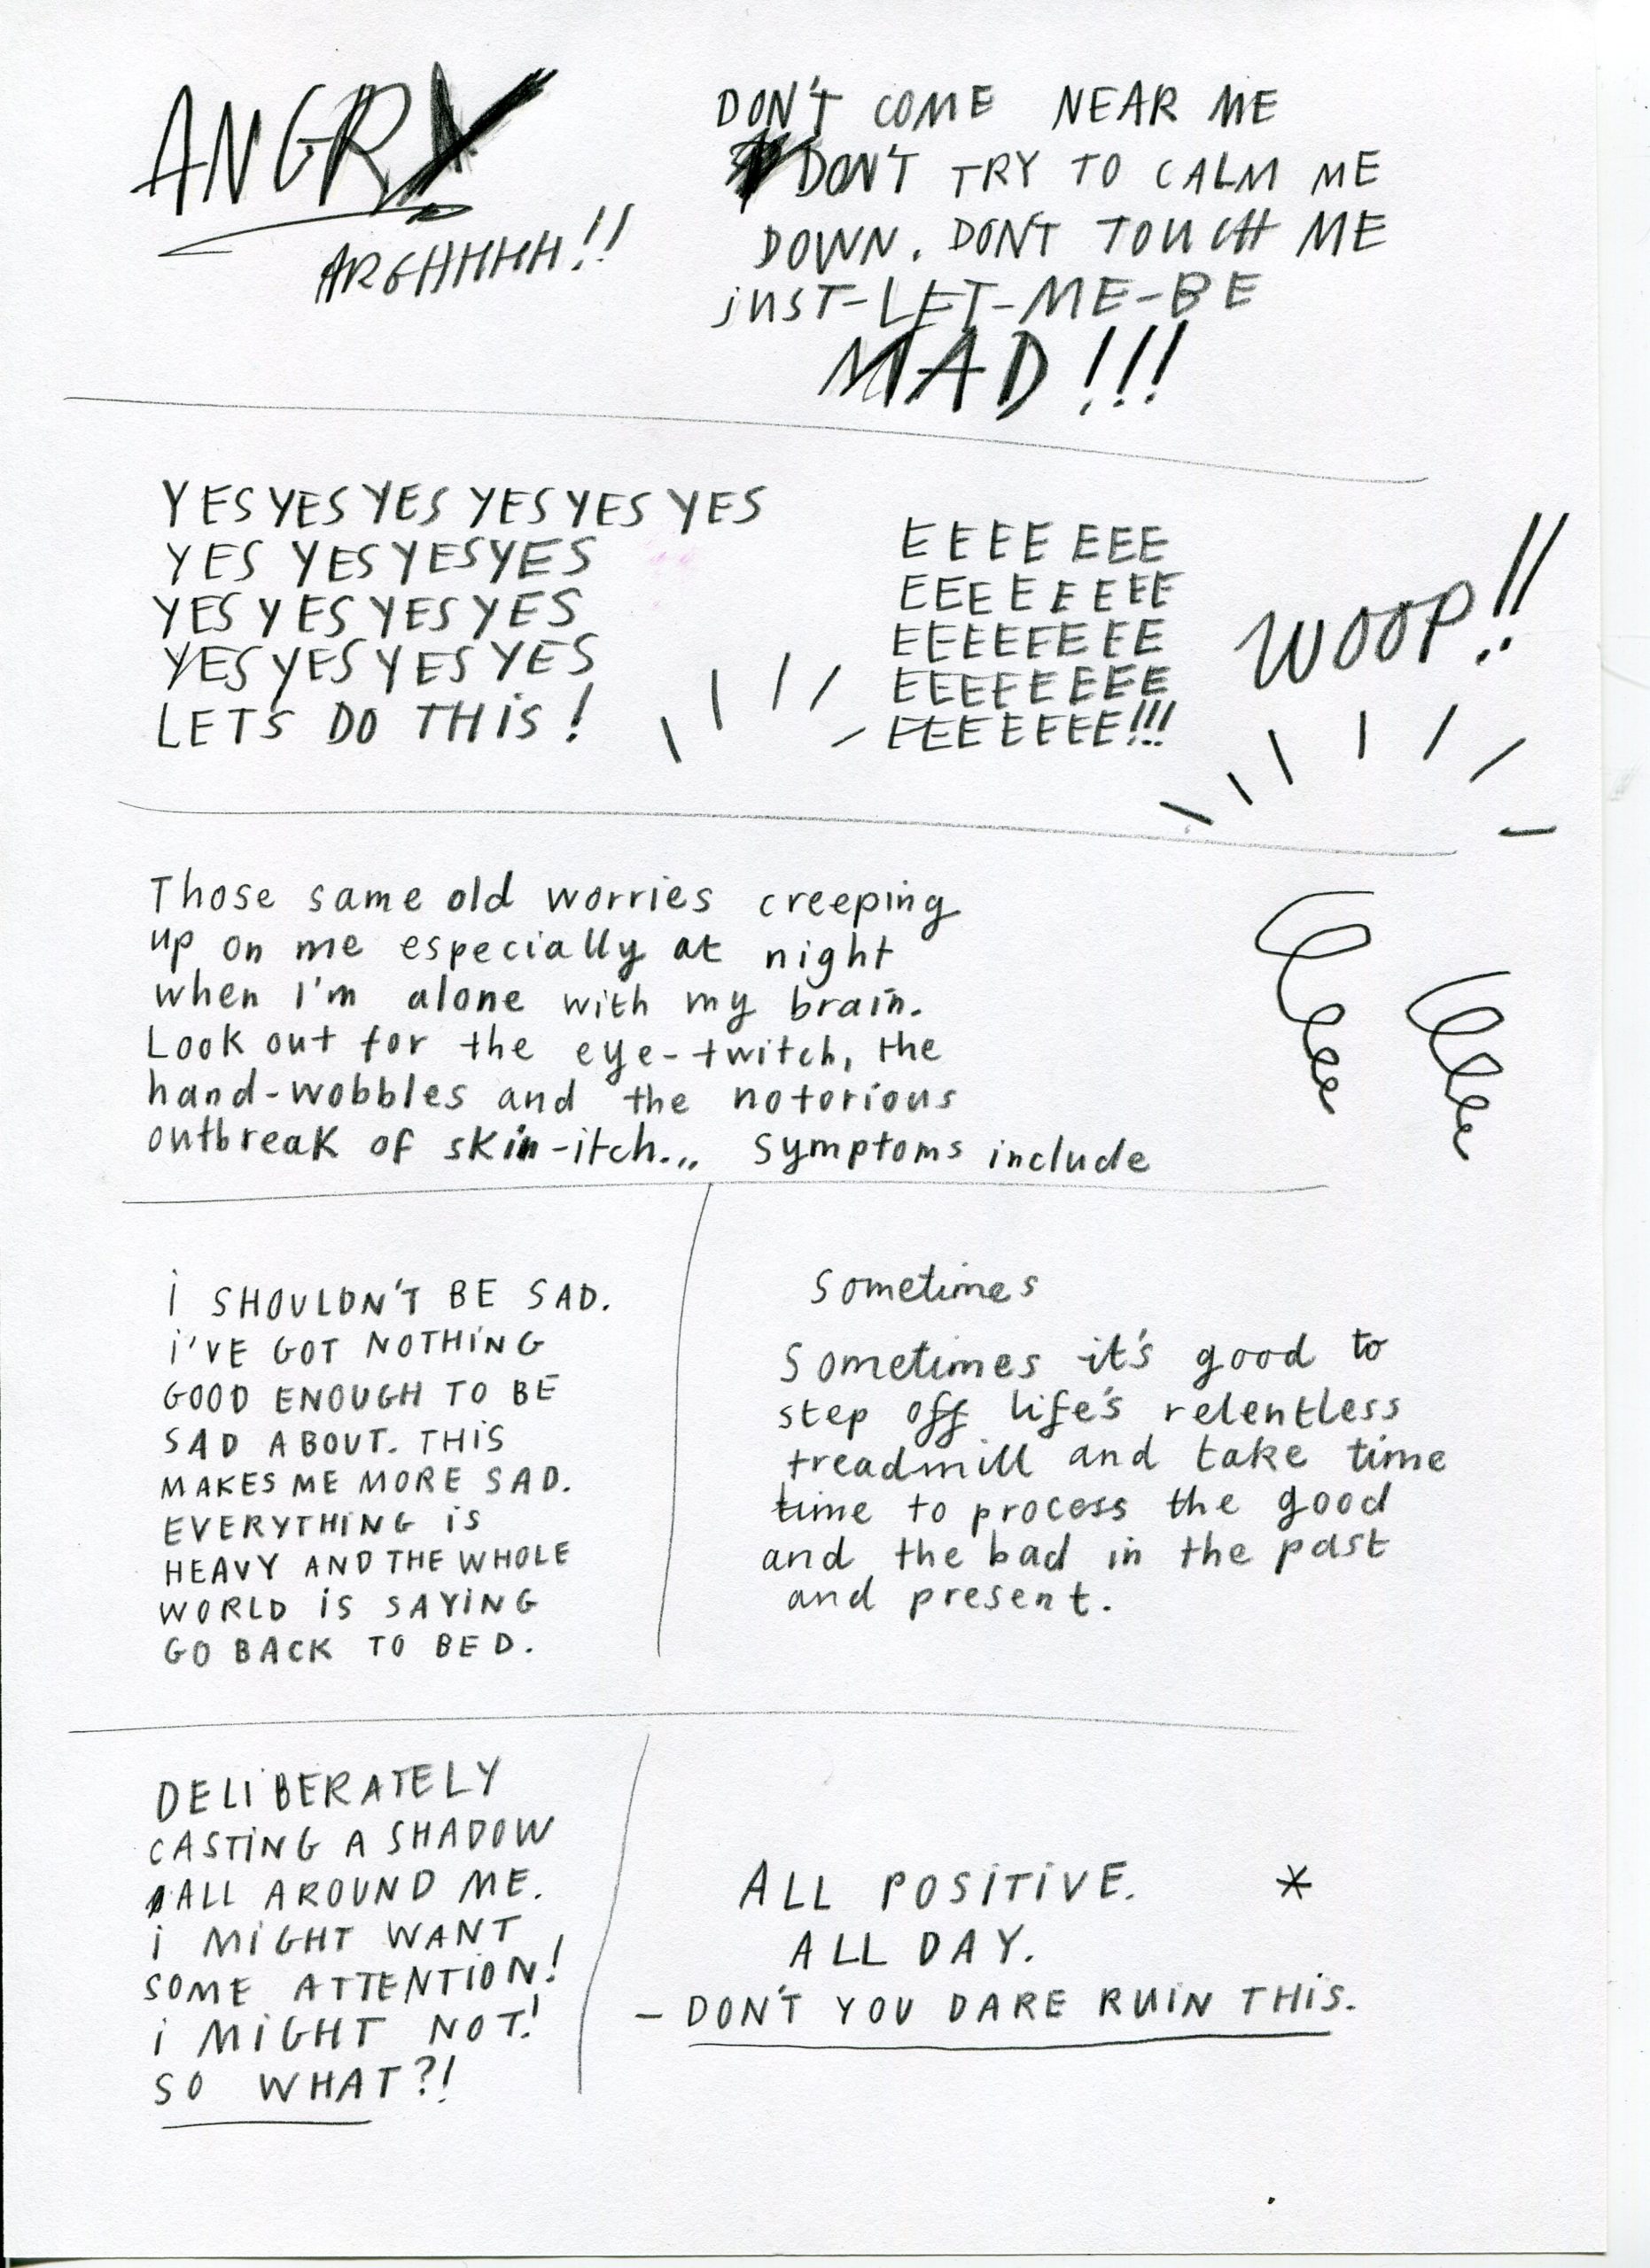 ANGRY
ARGHHHH!!
DON'T COME NEAR ME
DON'T TRY TO CALM ME
DOWN. DON'T TOUCH ME
jUST-LET-ME-BE
MAD!!!
YESYESYESYESYESYES
YES YESYESYES
YESYESYESYES
YESYESYESYES
LETS DO THiS!
EEEE EEE
EEEEEEEE
EEEEEEEE
EEEEEEEE
EEEEEEE!!!
WOOP!!
Those same old worries creeping
up on me especially at night
when I'm alone with my brain.
Look out for the eye-twitch, the
hand-wobbles and the notorious
outbreak of skin-itch... symptoms include
i SHOULDN'T BE SAD.
i'VE GOT NOTHiNG
GOOD ENOUGH TO BE
SAD ABOUT. THiS
MAKES ME MORE SAD.
EVERYTHiNG iS
HEAVY AND THE WHOLE
WORLD iS SAYiNG
GO BACK TO BED.
Sometimes
Sometimes it's good to
step off life's relentless
treadmill and take time
time to process the good
and the bad in the past
and present.
DELiBERATELY
CASTiNG A SHADOW
ALL AROUND ME.
i MiGHT WANT
SOME ATTENTiON!
i MiGHT NOT!
SO WHAT?!
ALL POSiTiVE. *
ALL DAY.
- DON'T YOU DARE RUIN THiS.